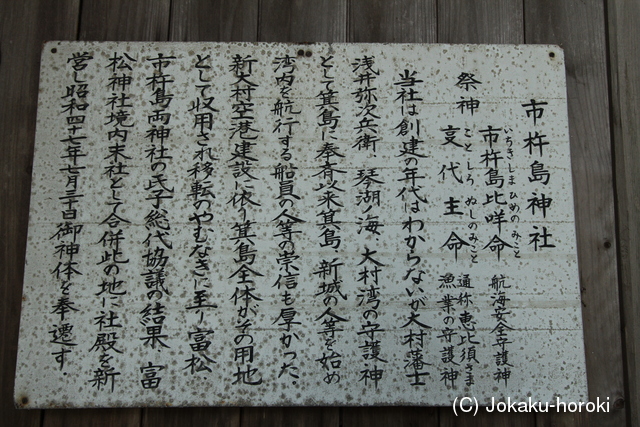 市杵島神社
いちきしまひめのみこと
市杵島比咩命 航海安全守護神
祭神
ことしろぬしのみこと
亊代主命 通称恵比須さま
漁業の守護神
当社は創建の年代はわからないが大村藩士
浅井弥次兵衛、琴湖海、大村湾の守護神
として箕島に奉斉以来箕島、新城の人等を始め
湾内を航行する船員の人等の崇信も厚かった、
新大村空港建設に依り箕島全体がその用地
として収用され移転のやむなきに至り富松
市杵島両神社の氏子総代協議の結果、富
松神社境内末社として今併此の地に社殿を新
営し昭和四十七年七月三十日御神体を奉遷す.
(C) Jokaku-horoki